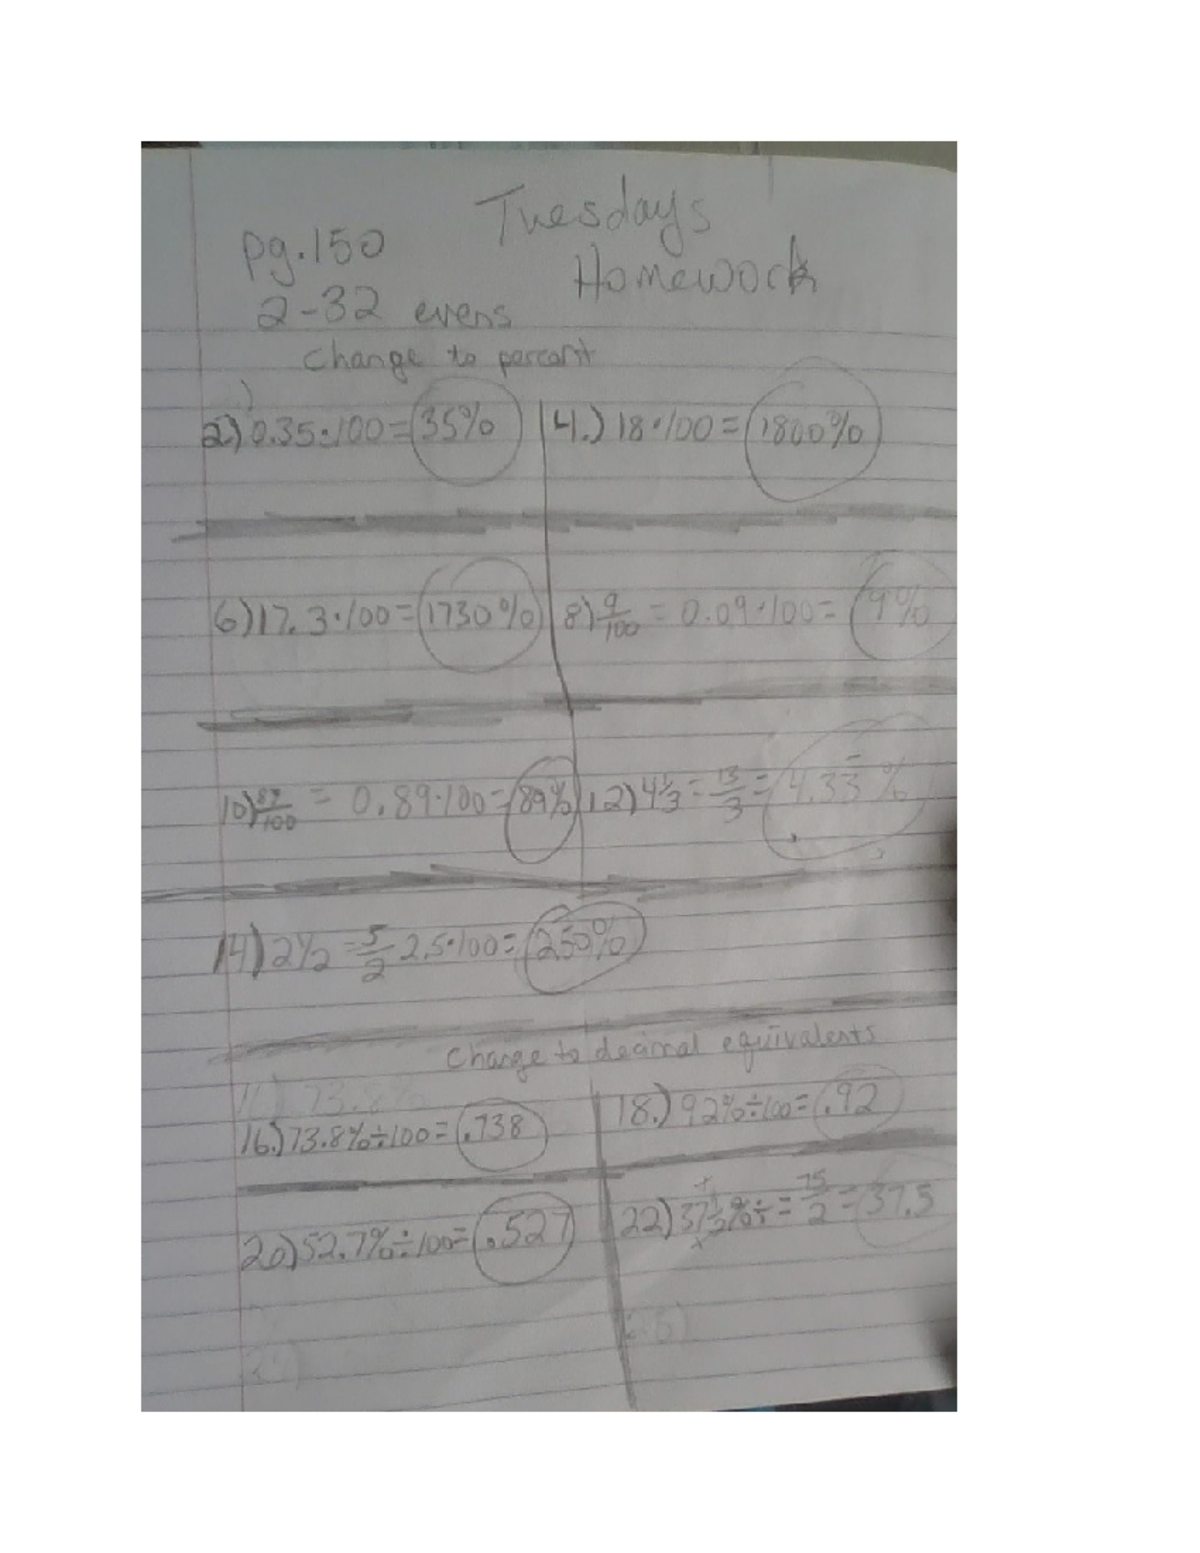 Tuesdays
Homework
pg.150
2-32 evens
Change to percent
2.) 0.35·100=35%
4.) 18·100=1800%
6) 17.3·100=1730%
8) 9/100 = 0.09·100= 9%
10) 89/100 = 0.89·100=89%
12) 4 1/3 = 13/3 = 4.33 %
14) 2 1/2 = 5/2 2.5·100= 250%
Change to decimal equivalents
16.) 73.8%÷100= .738
18.) 92%÷100= .92
20) 52.7%÷100= .527
22) 37 1/2 %÷ = 75/2 = 37.5